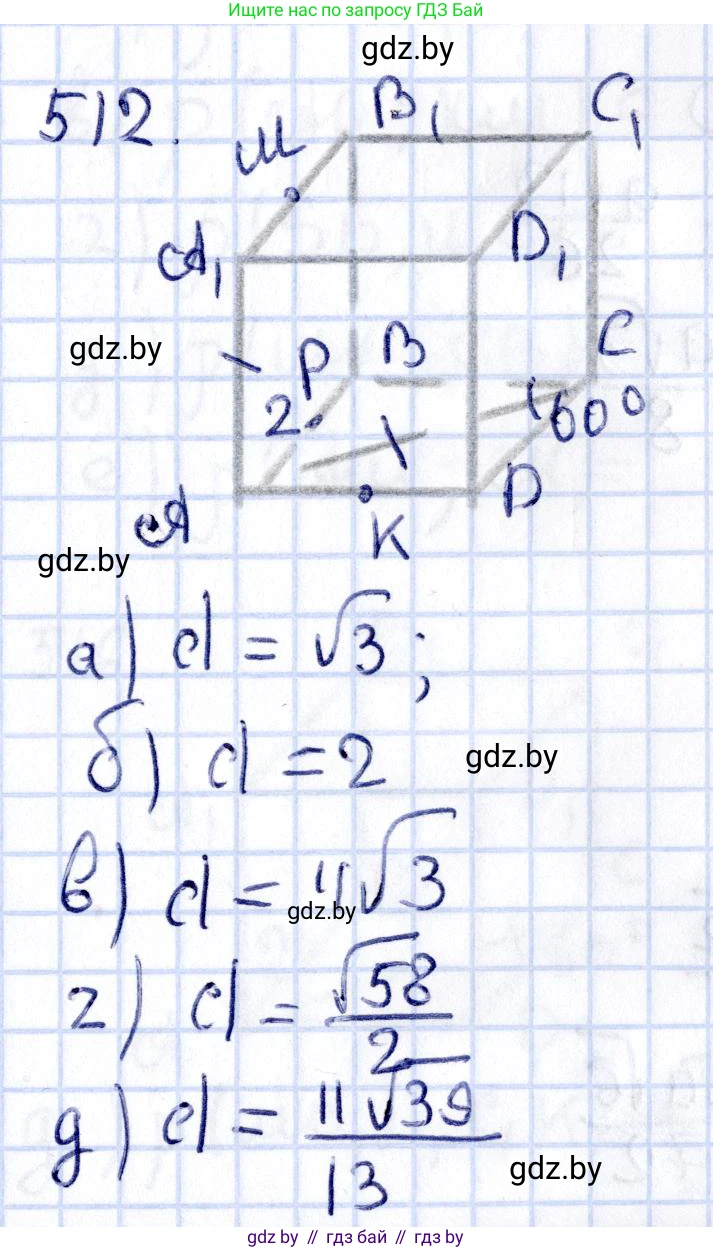 Ищите нас по запросу ГДЗ Бай
gdz.by
512.
B₁ C₁
M
A₁ D₁
gdz.by
P B C
2 60°
A D
K
gdz.by
а) d = √3;
б) d = 2
gdz.by
в) d = 4√3
gdz.by
г) d = √58/2
д) d = 11√39/13
gdz.by
gdz.by // гдз бай // gdz.by